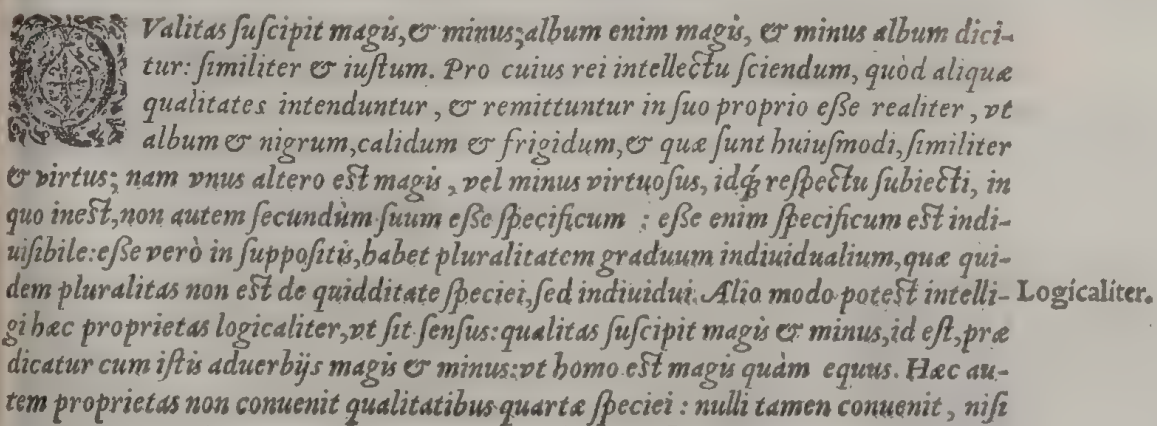 QValitas ſuſcipit magis, & minus; album enim magis, & minus album dici-
tur: ſimiliter & iuſtum. Pro cuius rei intellectu ſciendum, quòd aliquæ
qualitates intenduntur, & remittuntur in ſuo proprio eſſe realiter, vt
album & nigrum, calidum & frigidum, & quæ ſunt huiuſmodi, ſimiliter
& virtus; nam vnus altero eſt magis, vel minus virtuoſus, idq́; reſpectu ſubiecti, in
quo ineſt, non autem ſecundùm ſuum eſſe ſpecificum: eſſe enim ſpecificum eſt indi-
uiſibile: eſſe verò in ſuppoſitis, habet pluralitatem graduum indiuidualium, quæ qui-
dem pluralitas non eſt de quidditate ſpeciei, ſed indiuidui. Alio modo poteſt intelli- Logicaliter.
gi hæc proprietas logicaliter, vt ſit ſenſus: qualitas ſuſcipit magis & minus, id eſt, præ
dicatur cum iſtis aduerbijs magis & minus: vt homo eſt magis quàm equus. Hæc au-
tem proprietas non conuenit qualitatibus quartæ ſpeciei: nulli tamen conuenit, niſi